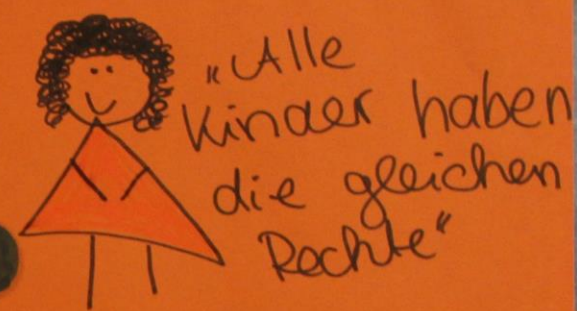 „Alle
Kinder haben
die gleichen
Rechte“